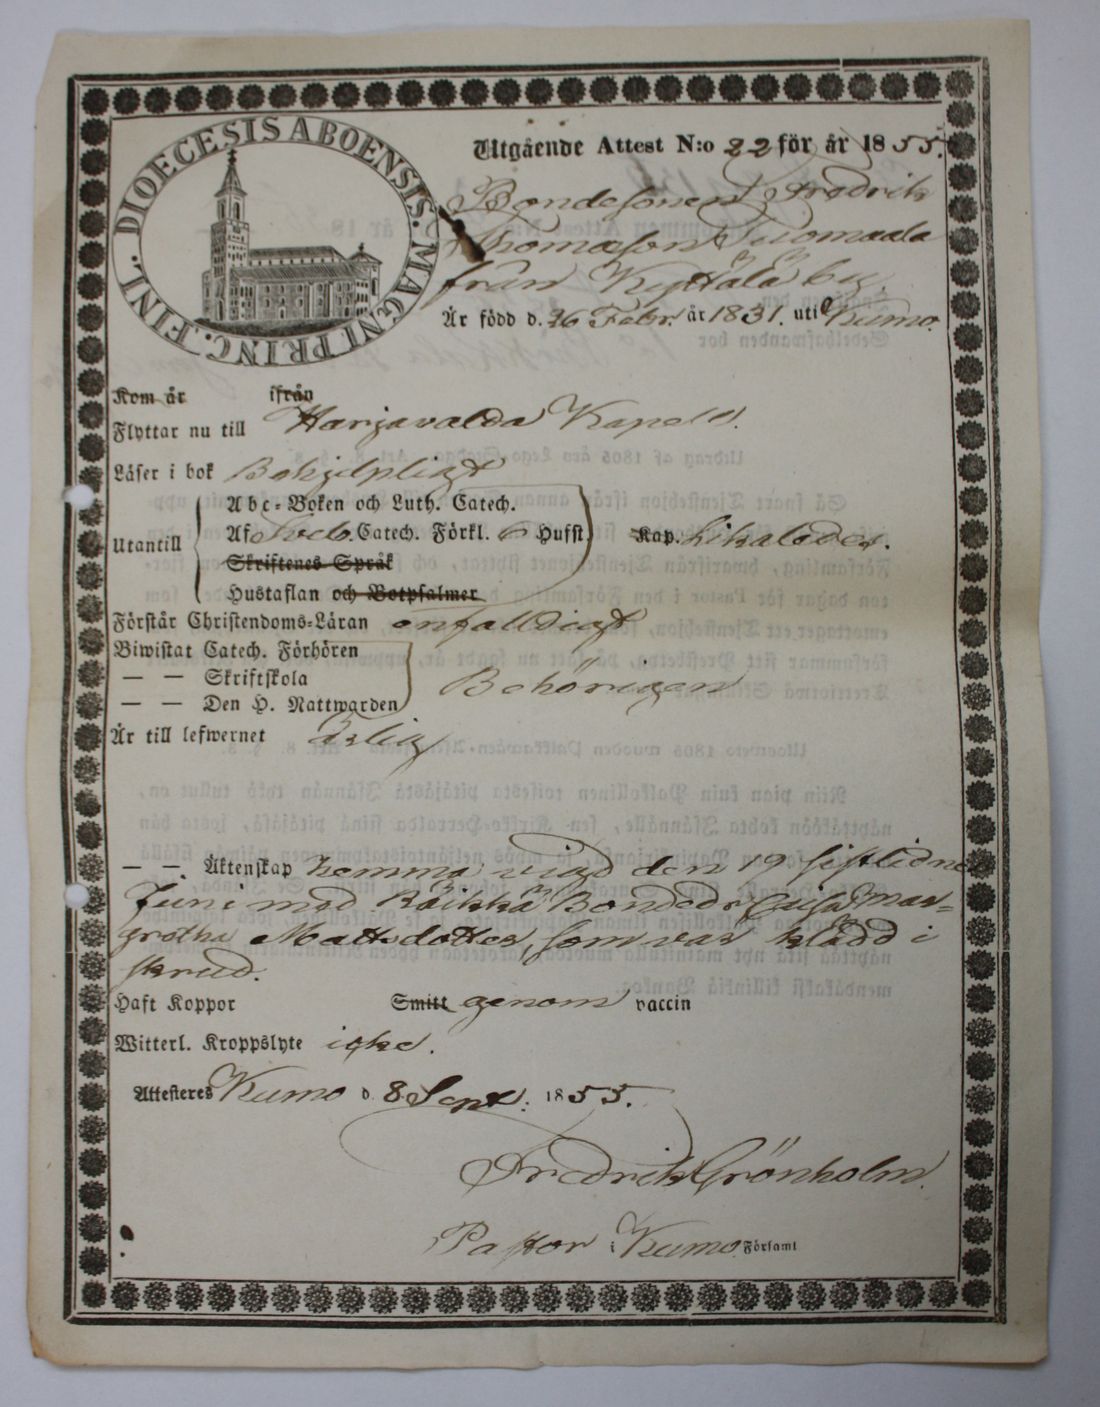 DIOECESIS ABOENSIS. MAGNI PRINC. FINL.
Utgående Attest N:o 22 för år 1855.
Bondesonen Fredrik
Thomasson Tuomaala
från Kyttälä by.
Är född d. 26 Febr. år 1831. uti Kumo.
Kom år ifrån
Flyttar nu till Harjavalda Kapell.
Läser i bok Behjelpligt
Utantill
Abc-Boken och Luth. Catech.
Af Sveb. Catech. Förkl. 6 Hufst. Kap. Likaledes.
Skriftenes Språk
Hustaflan och Botpsalmer
Förstår Christendoms-Läran enfalldigt
Biwistat Catech. Förhören
— — Skriftskola Behörigen
— — Den H. Nattwarden
Är till lefwernet Ärlig
— — Äktenskap hemma vigd den 19 sistlidne
Juni med Bonded: Caisa Mar=
gretha Mattsdotter, som var klädd i
skrud.
Haft Koppor Smitt genom vaccin
Witterl. Kroppslyte icke.
Attesteres Kumo d. 8 Sept. 1855.
Fredrik Grönholm.
Pastor i Kumo Församl